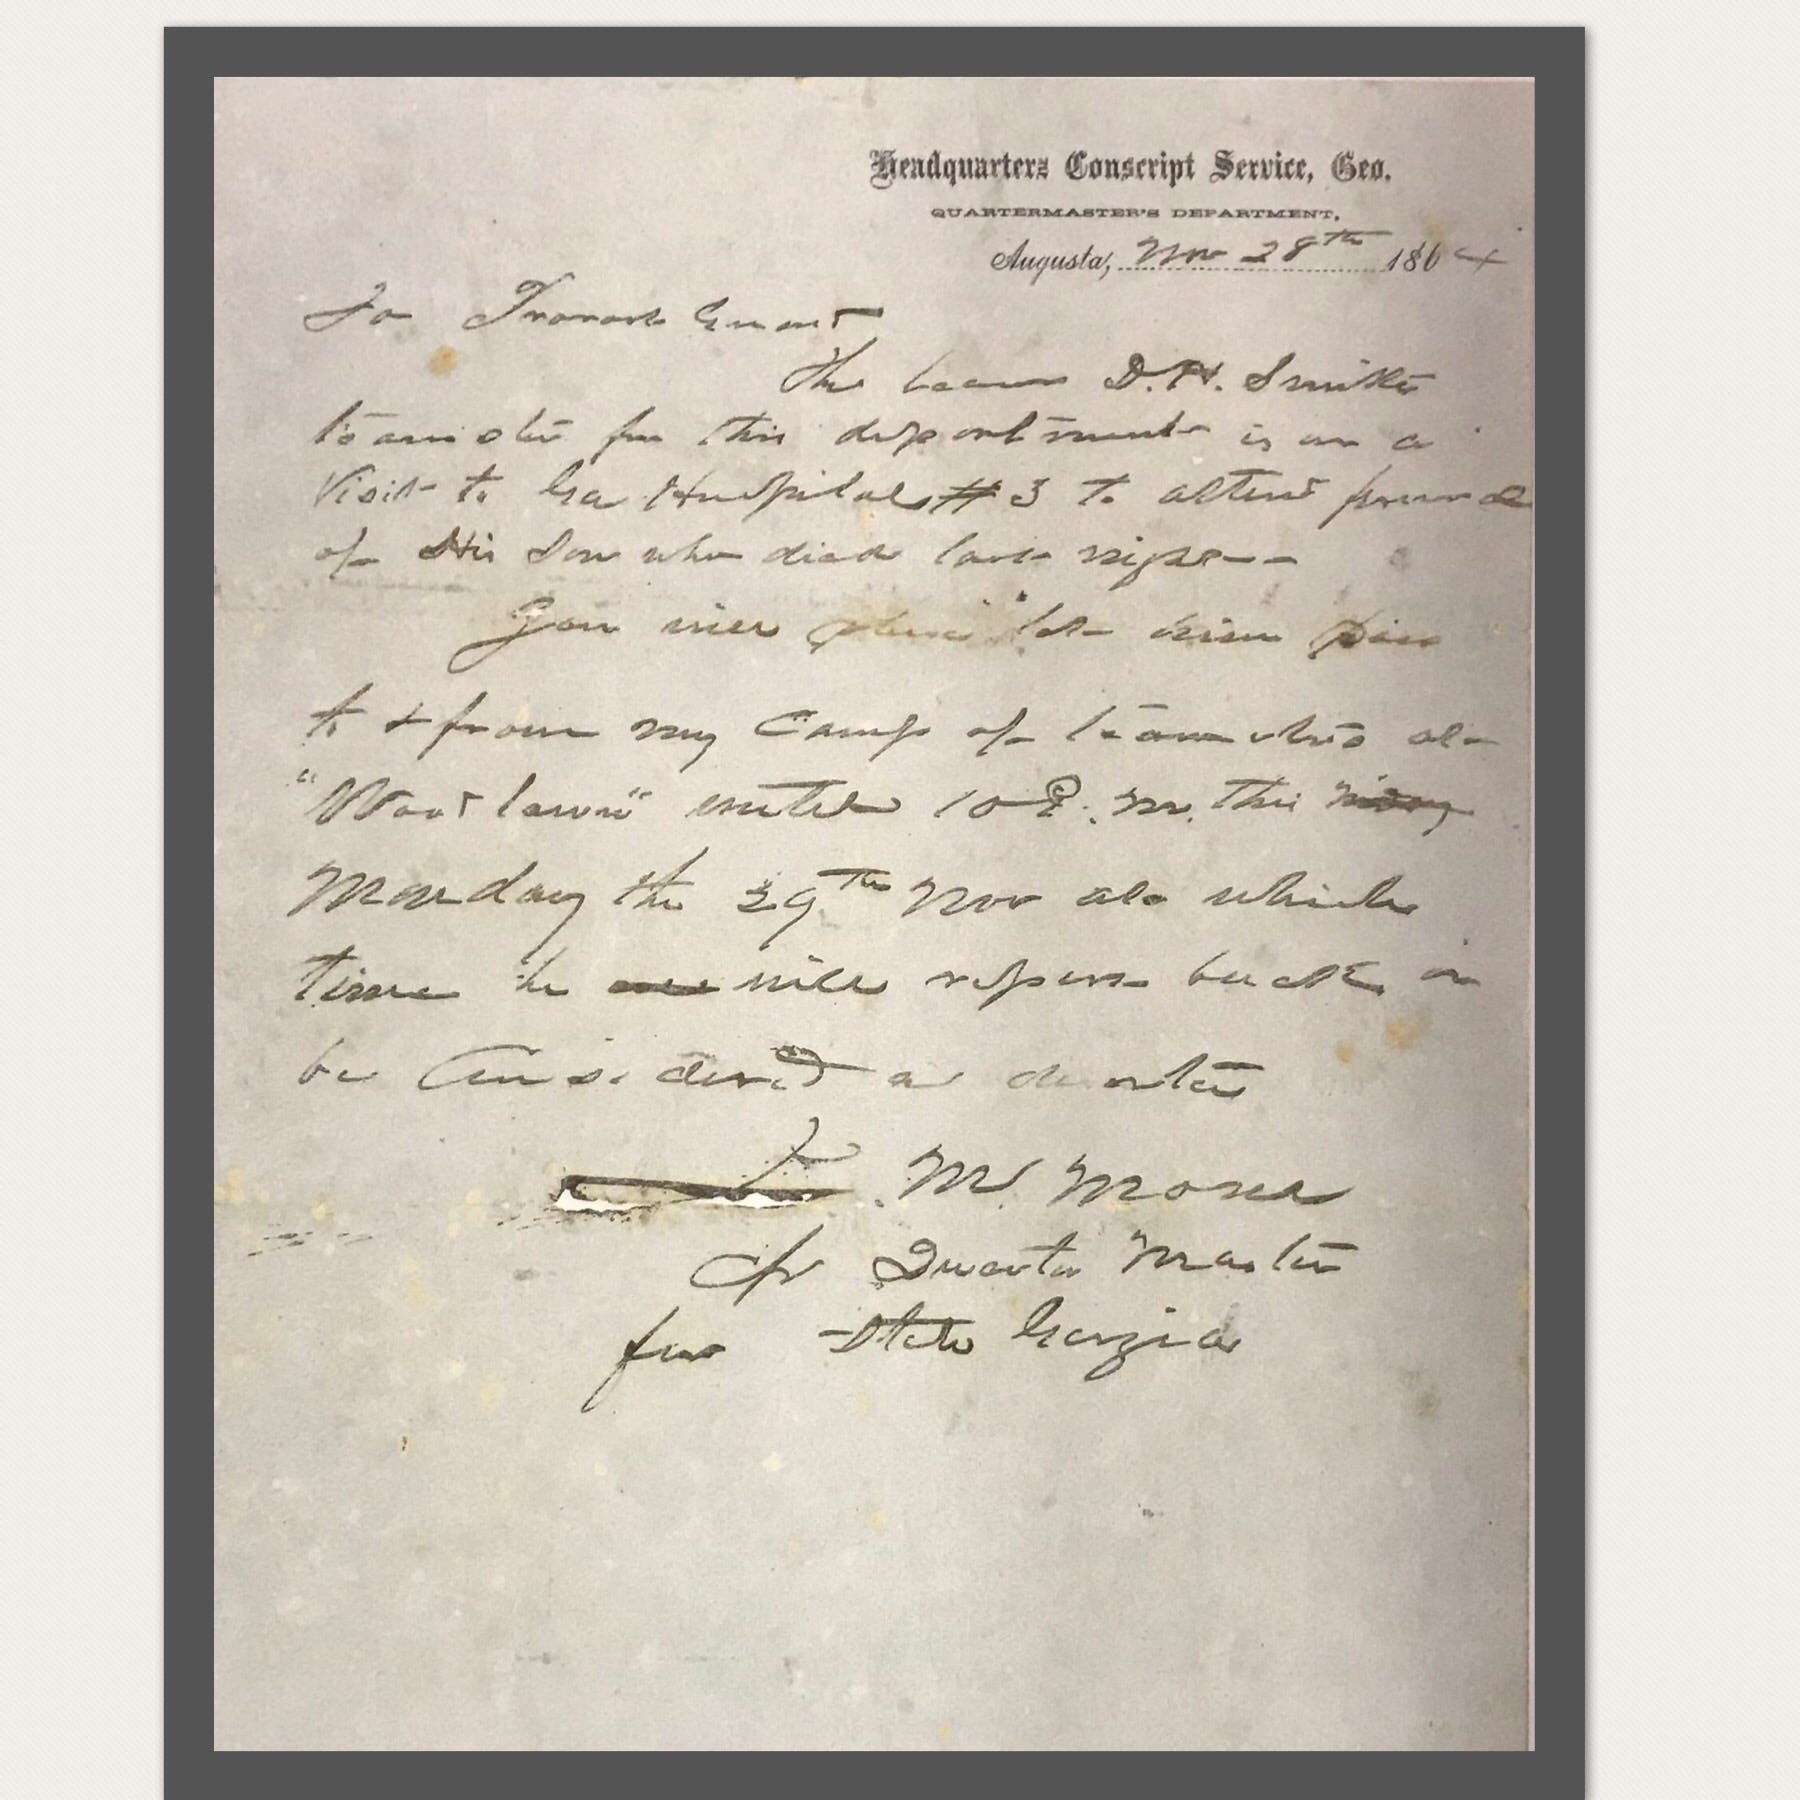 Headquarters Conscript Service, Geo.
QUARTERMASTER'S DEPARTMENT,
Augusta, Nov 28th 1864
To Provost Guard
The bearer D. H. Smith
teamster for this department is on a
visit to Ga Hospital #3 to attend funeral
of His Son who died last night
You will please let him pass
to & from my Camp of teamsters at
"Woodlawn" until 10 P. M. this
Monday the 29th Nov at which
time he will report back or
be Considered a deserter
M. Moses
Quarter Master
for State Georgia